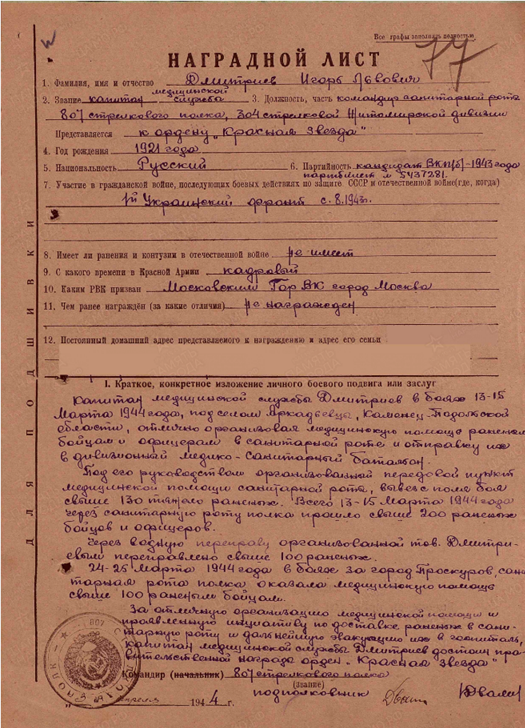 Все графы заполнять полностью
77
НАГРАДНОЙ ЛИСТ
1. Фамилия, имя и отчество Дмитриев Игорь Львович
медицинской
2. Звание капитан службы 3. Должность, часть командир санитарной роты
807 стрелкового полка, 304 стрелковой Житомирской дивизии
Представляется к ордену „Красная Звезда"
4. Год рождения 1921 года
5. Национальность Русский 6. Партийность кандидат ВКП(б)-1943 года
партбилет № 5437281.
7. Участие в гражданской войне, последующих боевых действиях по защите СССР и отечественной войне (где, когда)
1й Украинский фронт с 8.1943г.
8. Имеет ли ранения и контузии в отечественной войне не имеет
9. С какого времени в Красной Армии кадровый
10. Каким РВК призван Московским ГорВК город Москва
11. Чем ранее награждён (за какие отличия) не награжден
12. Постоянный домашний адрес представляемого к награждению и адрес его семьи
ДЛЯ ПОДШИВКИ
I. Краткое, конкретное изложение личного боевого подвига или заслуг
Капитан медицинской службы Дмитриев в боях 13-15
Марта 1944 года, под селом Аркадьевца, Каменец-Подольской
области, отлично организовал медицинскую помощь раненым
бойцам и офицерам в санитарной роте и отправку их
в дивизионный медико-санитарный баталион.
Под его руководством организованный передовой пункт
медицинской помощи санитарной роты, вывез с поля боя
свыше 130 тяжело раненых. Всего 13-15 Марта 1944 года
через санитарную роту полка прошло свыше 200 раненых
бойцов и офицеров.
Через водную переправу организованной тов. Дмитри-
евым переправлено свыше 100 раненых.
24-25 Марта 1944 года в боях за город Проскуров, сани-
тарная рота полка оказала медицинскую помощь
свыше 100 раненым бойцам.
За отличную организацию медицинской помощи и
проявленную инициативу по доставке раненых в сани-
тарную роту и дальнейшую эвакуацию их в госпиталь,
капитан медицинской службы Дмитриев достоин пра-
вительственной награды орден „Красная звезда"
Командир (начальник) 807 стрелкового полка
(звание)
подполковник
апреля 1944 г.